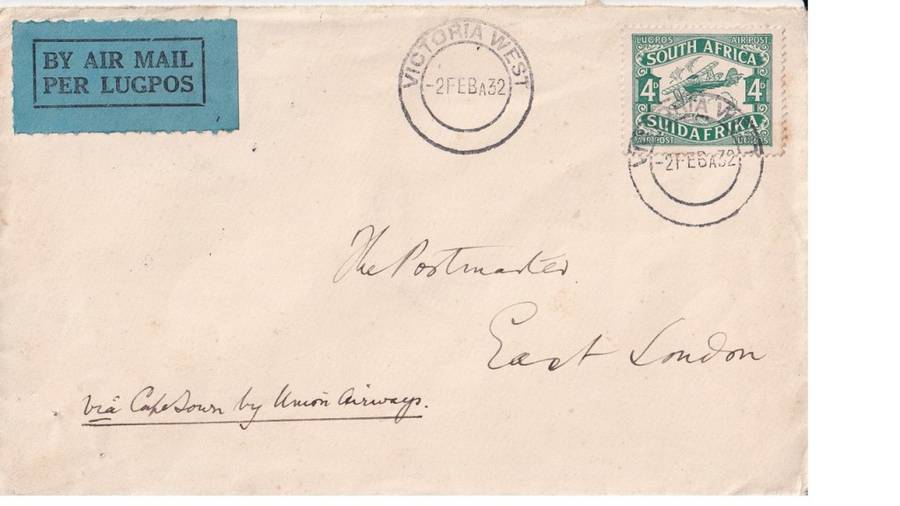 BY AIR MAIL
PER LUGPOS
VICTORIA WEST
-2FEBA32
LUGPOS AIR POST
SOUTH AFRICA
4D 4D
SUIDAFRIKA
AIR POST LUGPOS
-2FEBA32
The Postmaster
East London
via Cape Town by Union Airways.